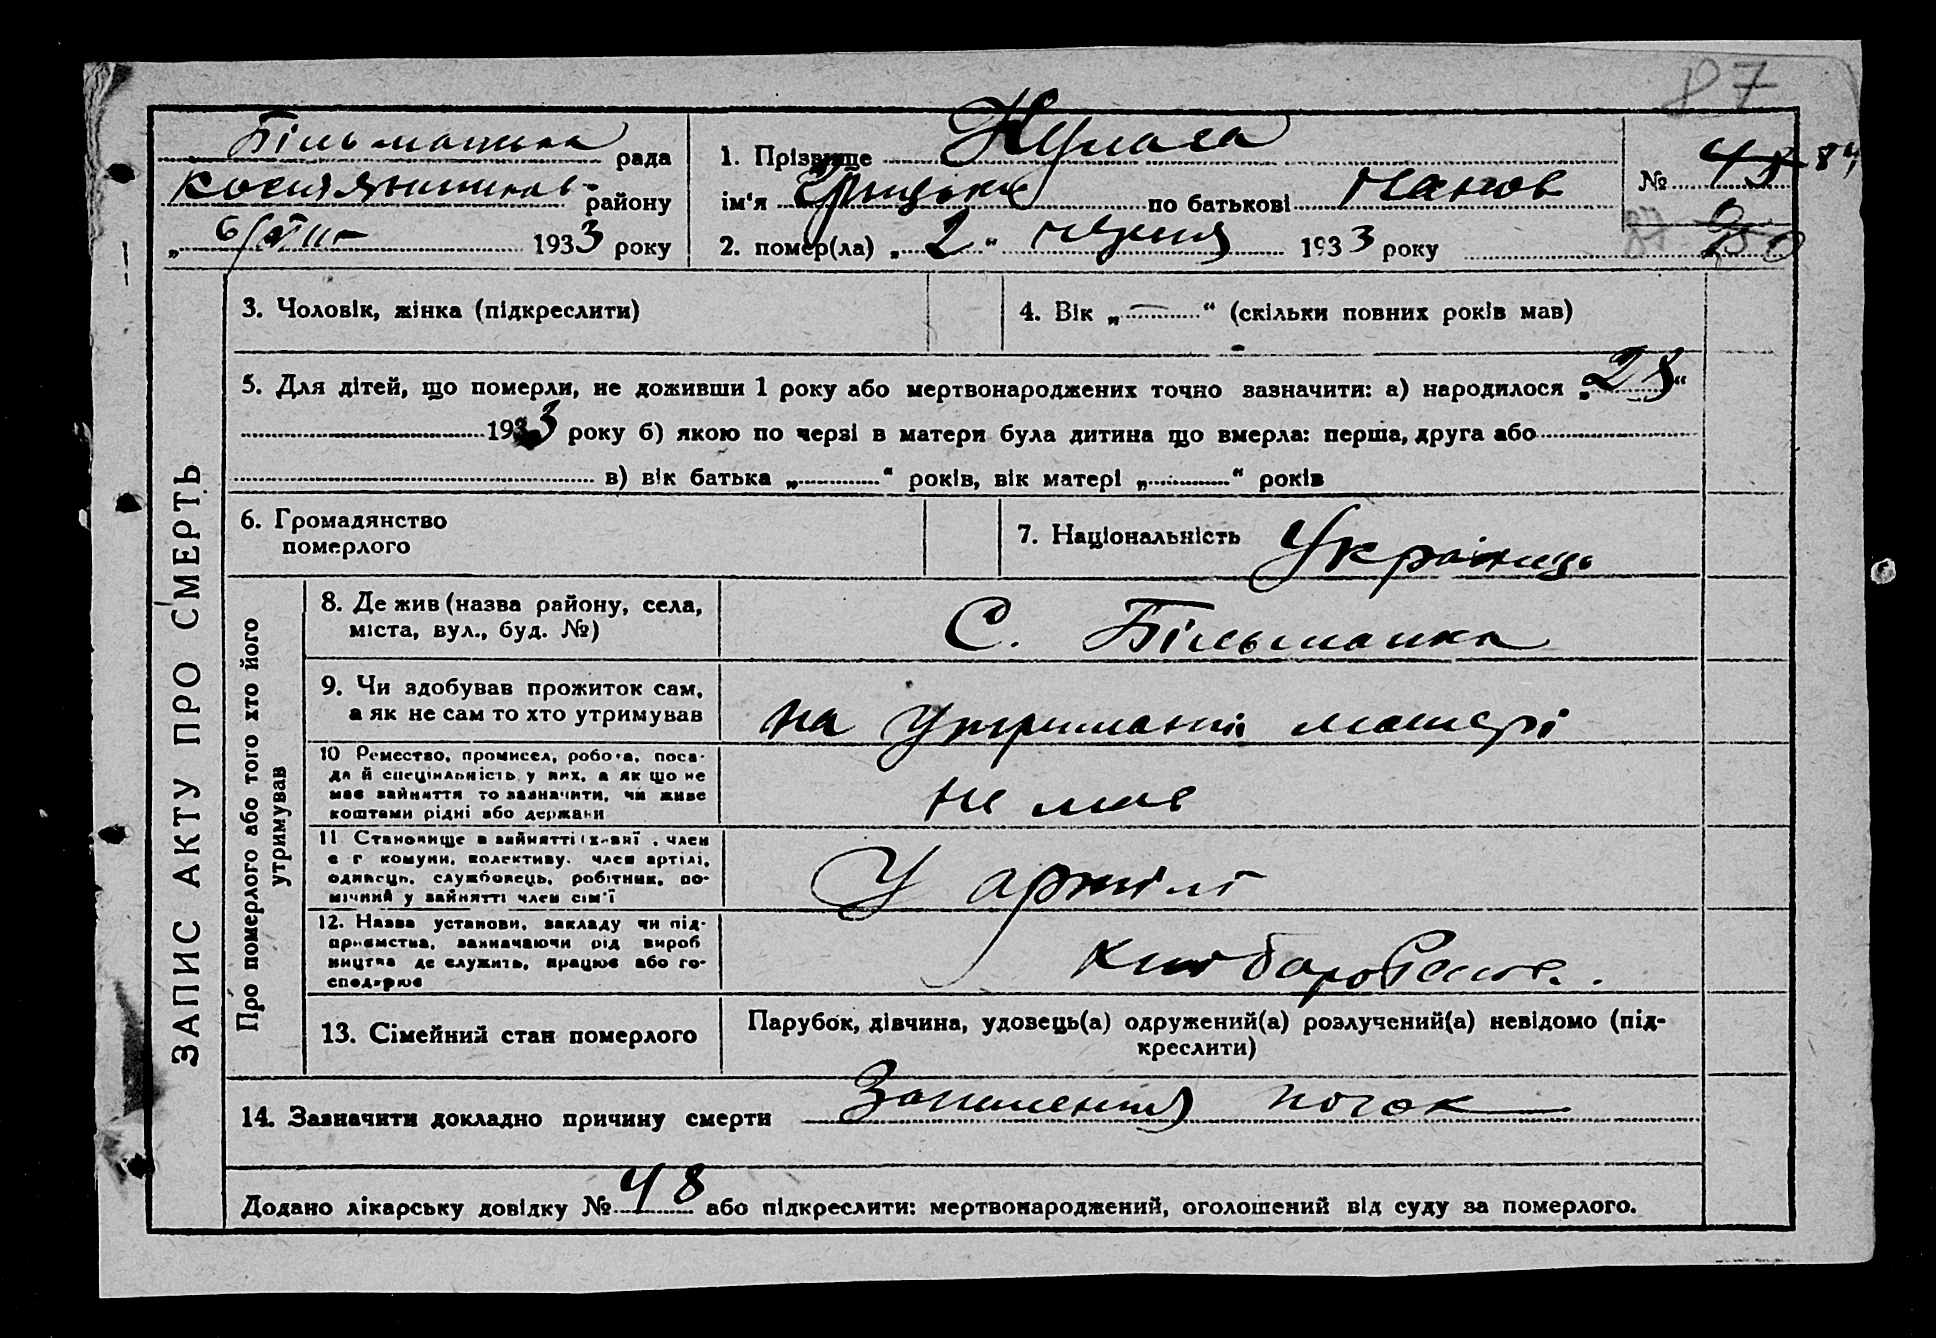 87
Більманська рада
1. Прізвище
№ 48 84
району
ім'я Грицько по батькові Іванов
1933 року
2. помер(ла) „ 2 “ червня 1933 року
ЗАПИС АКТУ ПРО СМЕРТЬ
3. Чоловік, жінка (підкреслити)
4. Вік „ — “ (скільки повних років мав)
5. Для дітей, що померли, не доживши 1 року або мертвонароджених точно зазначити: а) народилося „ 28 “
1933 року б) якою по черзі в матери була дитина що вмерла: перша, друга або
в) вік батька „ “ років, вік матері „ “ років
6. Громадянство
померлого
7. Національність Українць
Про померлого або того хто його
утримував
8. Де жив (назва району, села,
міста, вул., буд. №)
С. Більманка
9. Чи здобував прожиток сам,
а як не сам то хто утримував
на утриманні матері
10 Ремество, промисел, робота, поса-
да й спеціяльність у них, а як що не
має зайняття то зазначити, чи живе
коштами рідні або держави
не має
11 Становище в зайнятті член
с г комуни, колективу. член артілі,
одинець, службовець, робітник, по-
мічний у зайнятті член сім'ї
У артілі
12. Назва установи, закладу чи під-
приємства, зазначаючи рід вироб
ництва де служить, працює або го-
сподарює
13. Сімейний стан померлого
Парубок, дівчина, удовець(а) одружений(а) розлучений(а) невідомо (під-
креслити)
14. Зазначити докладно причину смерти Запалення почок
Додано лікарську довідку № 48 або підкреслити: мертвонароджений, оголошений від суду за померлого.